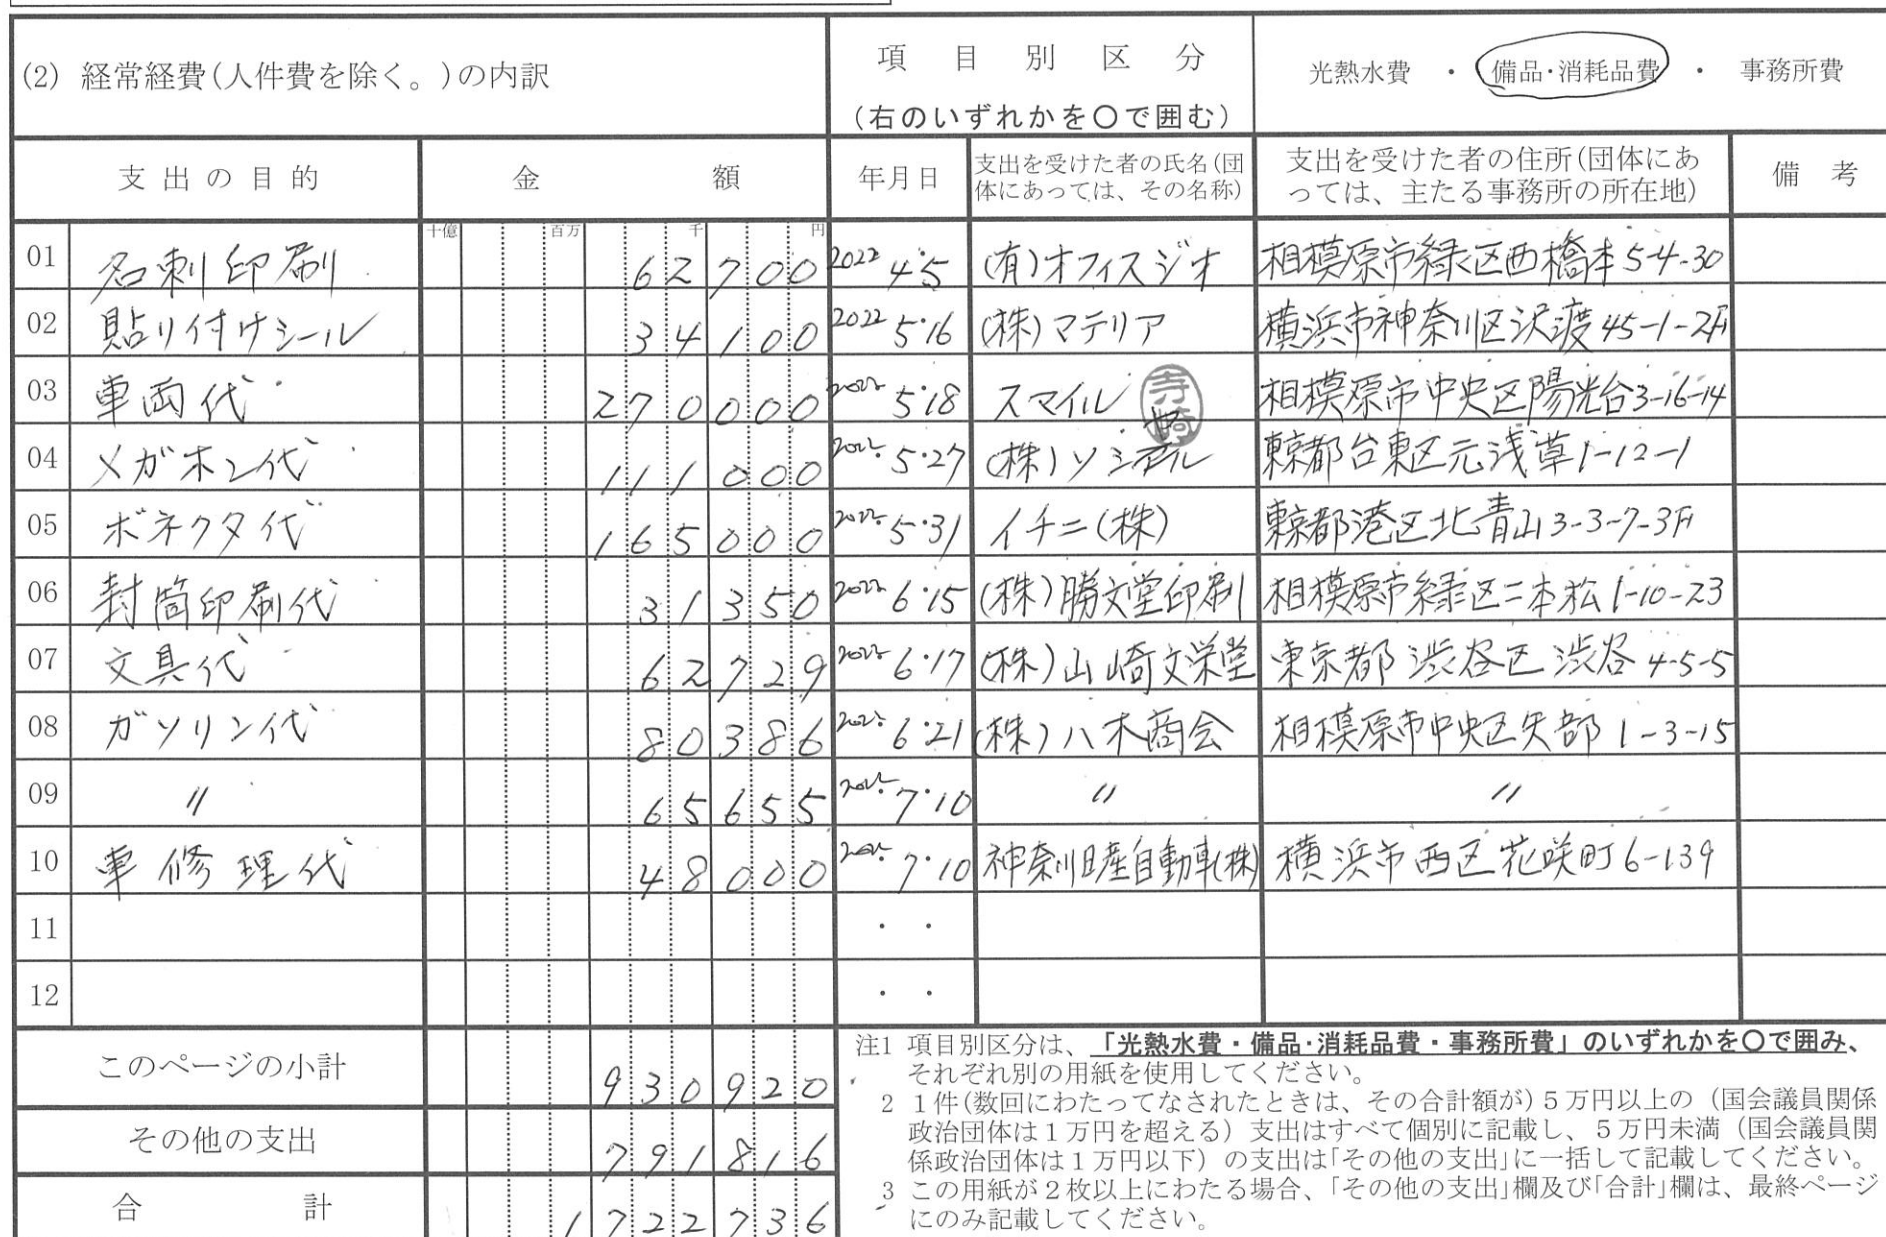 (2) 経常経費(人件費を除く。)の内訳
項目別区分
(右のいずれかを〇で囲む)
光熱水費 ・ 備品・消耗品費 ・ 事務所費
支出の目的 金額 年月日 支出を受けた者の氏名(団体にあっては、その名称) 支出を受けた者の住所(団体にあっては、主たる事務所の所在地) 備考
十億 百万 千 円
01 名刺印刷 62700 2022 4・5 (有)オフィスジオ 相模原市緑区西橋本5-4-30
02 貼り付けシール 34100 2022 5・16 (株)マテリア 横浜市神奈川区沢渡45-1-2F
03 車両代 270000 2022 5・18 スマイル 相模原市中央区陽光台3-16-14
寺崎
04 メガホン代 111000 2022 5・27 (株)ソシアル 東京都台東区元浅草1-12-1
05 ボネクタ代 165000 2022 5・31 イチニ(株) 東京都港区北青山3-3-7-3F
06 封筒印刷代 31350 2022 6・15 (株)勝文堂印刷 相模原市緑区二本松1-10-23
07 文具代 62729 2022 6・17 (株)山崎文栄堂 東京都渋谷区渋谷4-5-5
08 ガソリン代 80386 2022 6・21 (株)八木商会 相模原市中央区矢部1-3-15
09 〃 65655 2022 7・10 〃 〃
10 車修理代 48000 2022 7・10 神奈川日産自動車(株) 横浜市西区花咲町6-139
11 ・ ・
12 ・ ・
このページの小計 930920
その他の支出 791816
合計 1722736
注1 項目別区分は、「光熱水費・備品・消耗品費・事務所費」のいずれかを〇で囲み、
それぞれ別の用紙を使用してください。
2 1件(数回にわたってなされたときは、その合計額が)5万円以上の(国会議員関係
政治団体は1万円を超える)支出はすべて個別に記載し、5万円未満(国会議員関
係政治団体は1万円以下)の支出は「その他の支出」に一括して記載してください。
3 この用紙が2枚以上にわたる場合、「その他の支出」欄及び「合計」欄は、最終ページ
にのみ記載してください。